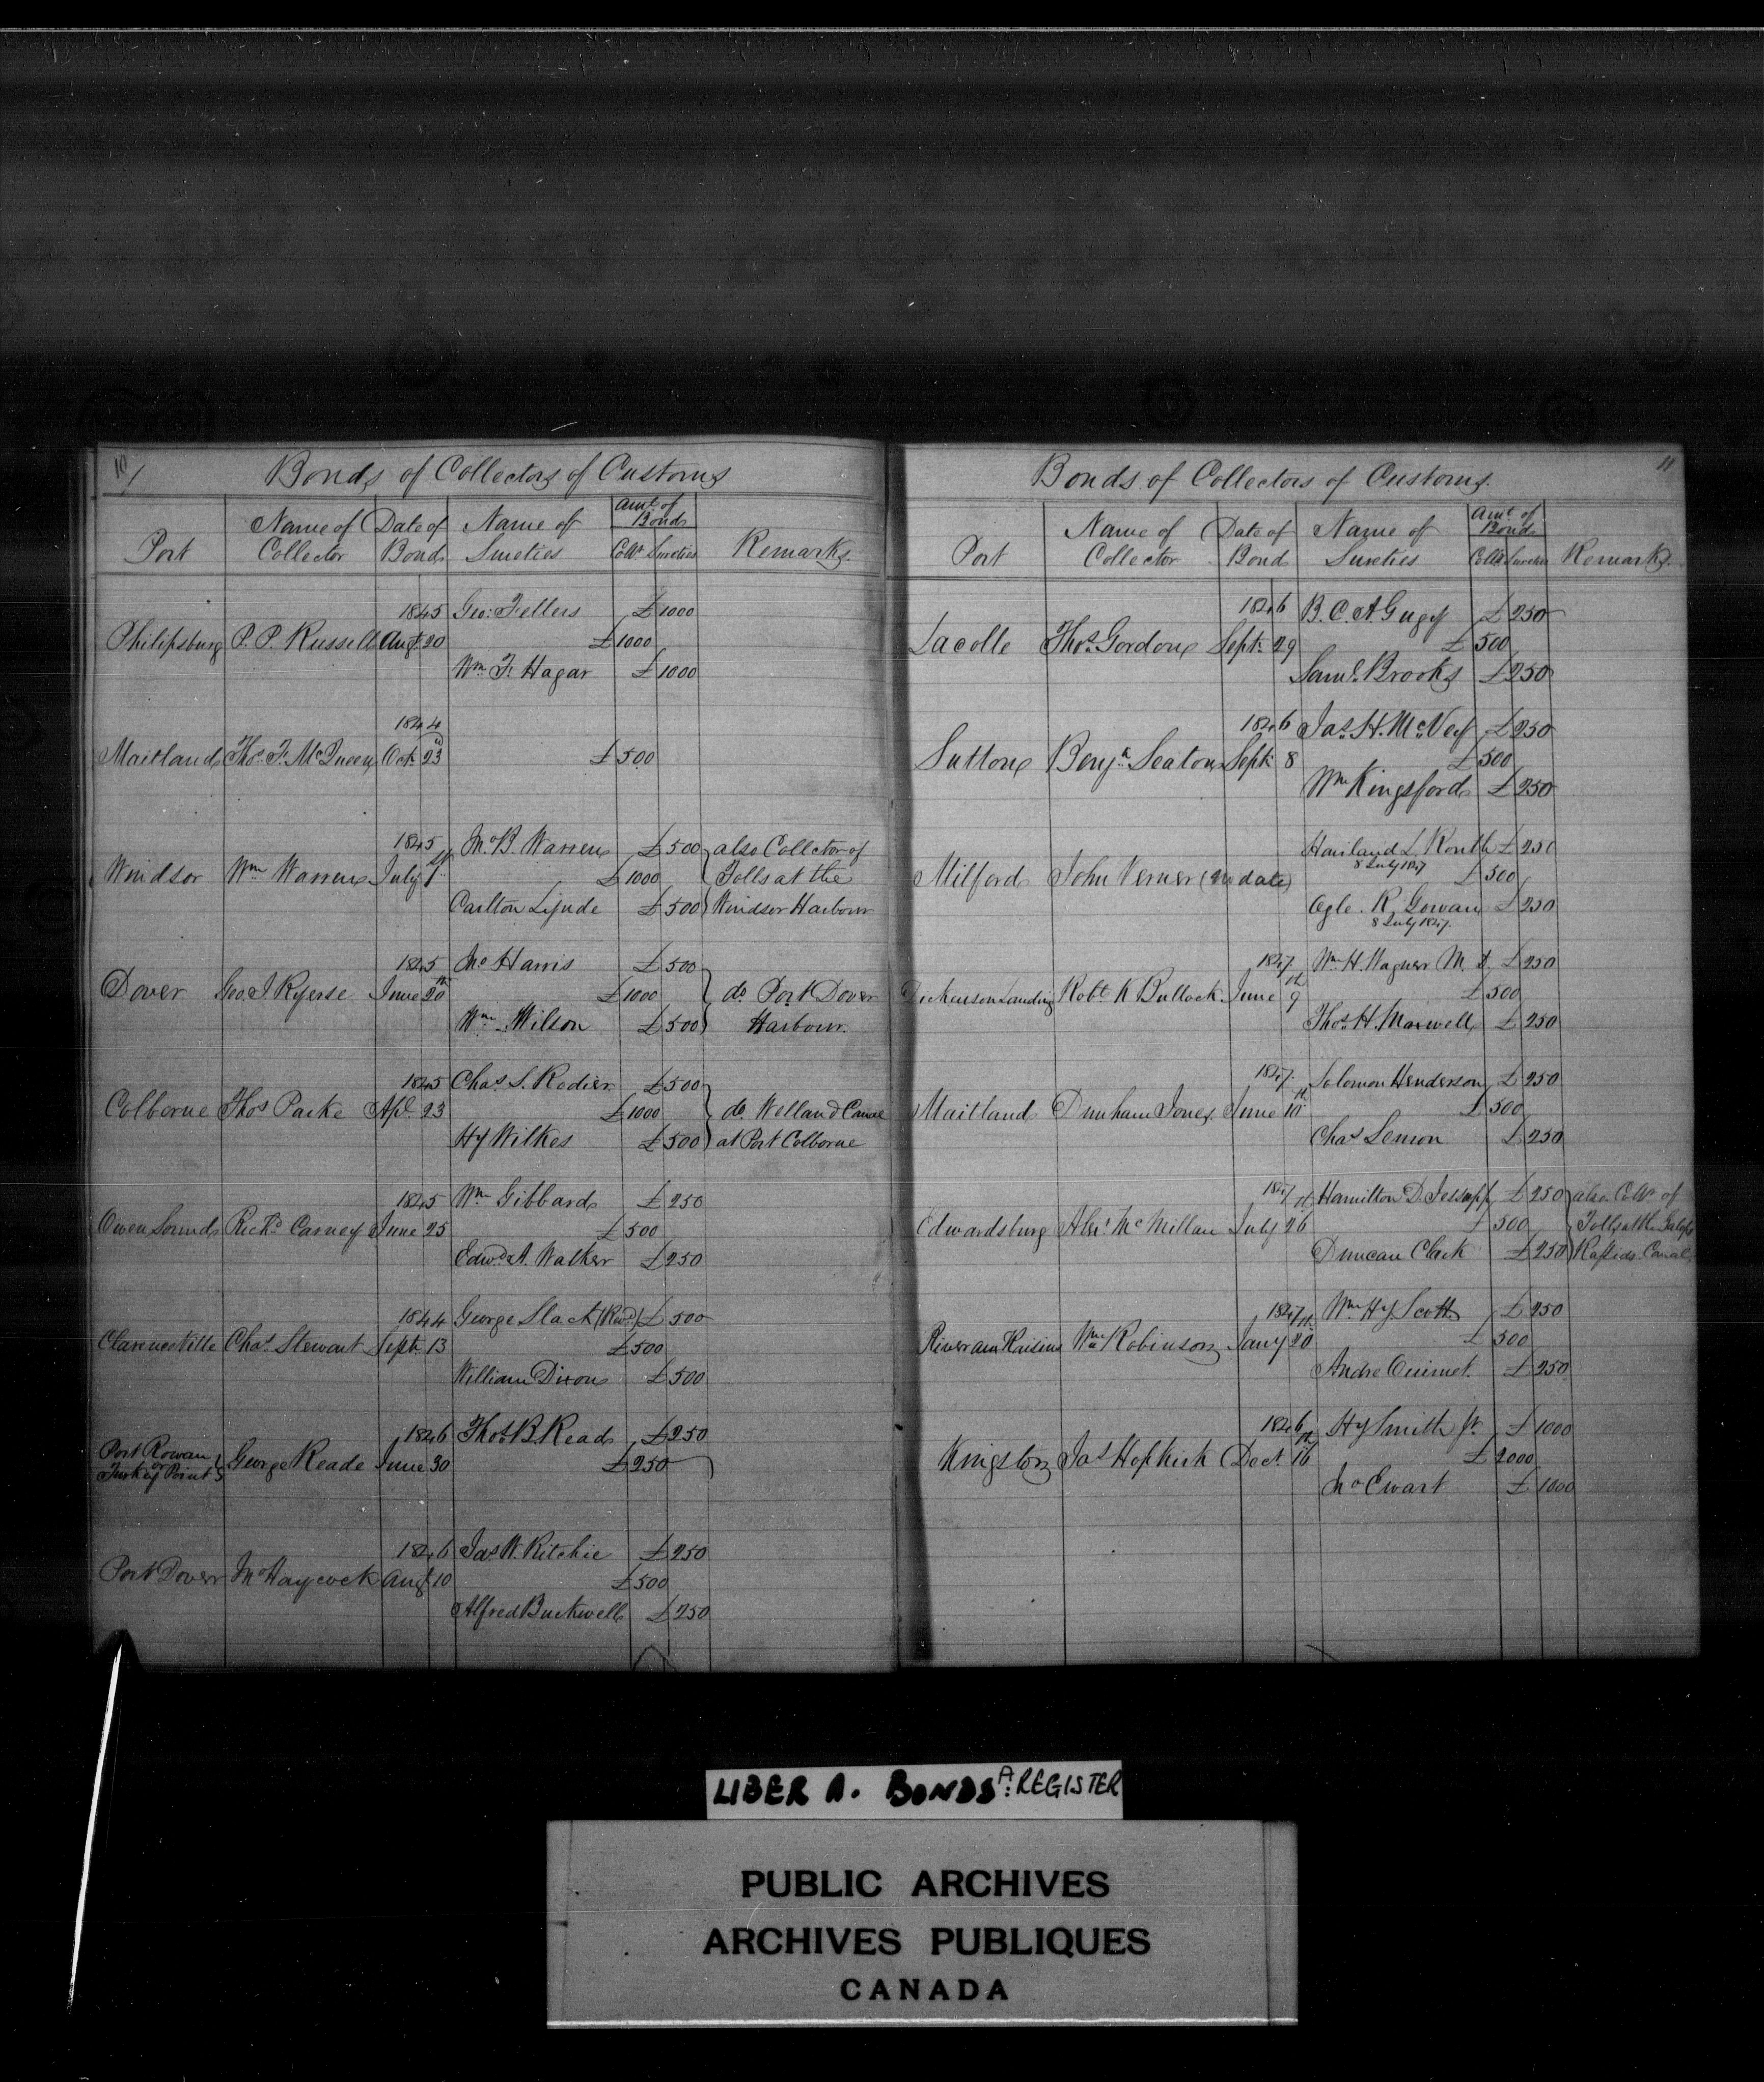 10/
Bonds of Collectors of Customs
Port Name of Collector Date of Bond Name of Sureties Amt of Bonds Collr Sureties Remarks.
1845 Geo: Fellers £1000
Philipsburg P. P. Russell Augt 20 £1000
Wm F. Hagar £1000
1844
Maitland Thos F. McQueen Octr 23d £500
1845 Jno B. Warren £500 also Collector of
Windsor Wm Warren July 1st £1000 Tolls at the
Carlton Lynde £500 Windsor Harbour
1845 Jno Harris £500
Dover Geo J Ryerse June 20th £1000 do Port Dover
Wm Wilson £500 Harbour.
1845 Chas S. Rodier £500
Colborne Thos Parke Apl 23 £1000 do Welland Canal
Hy Wilkes £500 at Port Colborne
1845 Wm Gibbard £250
Owen Sound Richd Carney June 25 £500
Edwd A. Walker £250
1844 George Slack (Revd) £500
Clarenceville Chas Stewart Sept. 13 £500
William Dixon £500
1846 Thos B Read £250
Port Rowan or Turkey Point George Reade June 30 £250
1846 Jas W. Ritchie £250
Port Dover Jno Haycock Augt 10 £500
Alfred Buckwell £250
11
Bonds of Collectors of Customs.
Port Name of Collector Date of Bond Name of Sureties Amt of Bonds Collr Sureties Remarks.
1846 B. C. A. Gugy £250
Lacolle Thos Gordon Septr 29 £500
Saml Brooks £250
1846 Jas H. McVey £250
Sutton Benjn Seaton Septr 8 £500
Wm Kingsford £250
L. Routh £250
8 July 1847
Milford John Verner (no date) £500
Ogle R Gowan £250
8 July 1847.
1847 Wm H. Wagner M. D. £250
Dickenson Landing Robt K Bullock June 9th £500
Thos H. Maxwell £250
1847. Solomon Henderson £250
Maitland Dunham Jones June 10th £500
Chas Lemon £250
1847 Hamilton D. Jessup £250 also Collr of
Edwardsburg Alexr McMillan July 26th £500 Tolls at the Galops
Duncan Clark £250 Rapids Canal
1847 Wm Hy. Scott £250
River aux Raisins Wm Robinson Jany 20th £500
Andre Ouimet. £250
1846 Hy Smith Jr. £1000
Kingston Jas Hopkirk Decr 16th £2000
Jno Ewart £1000
LIBER A. BONDS A: REGISTER
PUBLIC ARCHIVES
ARCHIVES PUBLIQUES
CANADA